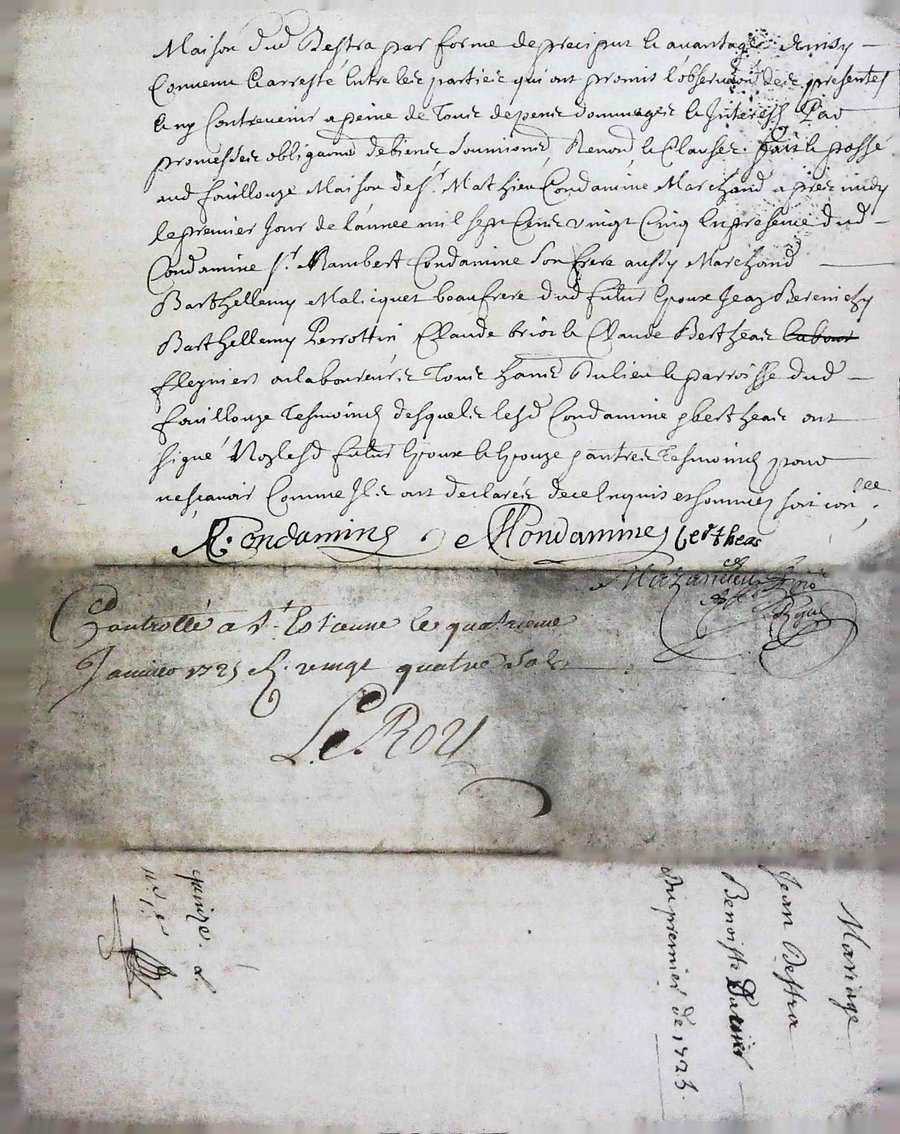 Maison dud Destra par forme de preciput & avantage Ainsy
Convenu & arresté Entre les parties qui ont promis lobservation des presentes
& ny Contrevenir a peine de Tous depens dommages & Interests Par
promesses obligaons de biens Soumions Renonns & Clauses. fait & passé
aud fouillouze Maison de sr. Mathieu Condamine Marchand apres midy
le premier Jour de lannée mil sept Cens vingt Cinq En presence dud
Condamine sr. Rambert Condamine Son frere aussy Marchand
Barthellemy Malicquet beaufrere dud futur Epoux Jean
Barthellemy Perrottin Claude brior & Claude Bertheas
tous & parroisse dud
fouillouze Tesmoins desquels lesd Condamine & bertheas ont
signé Non lesd futur Epoux & Epouze & autres Tesmoins pour
ne scavoir Comme Ils ont declarés de ce Enquis et sommés soit conllé.
R. Condamine M Condamine bertheas
Royal
Controllé a St. Estienne le quatrieme
Janvier 1725 R. vingt quatre sols
Le Roy
Mariage
Jean Destra
Benoiste
Du premier de 1725.
quinze